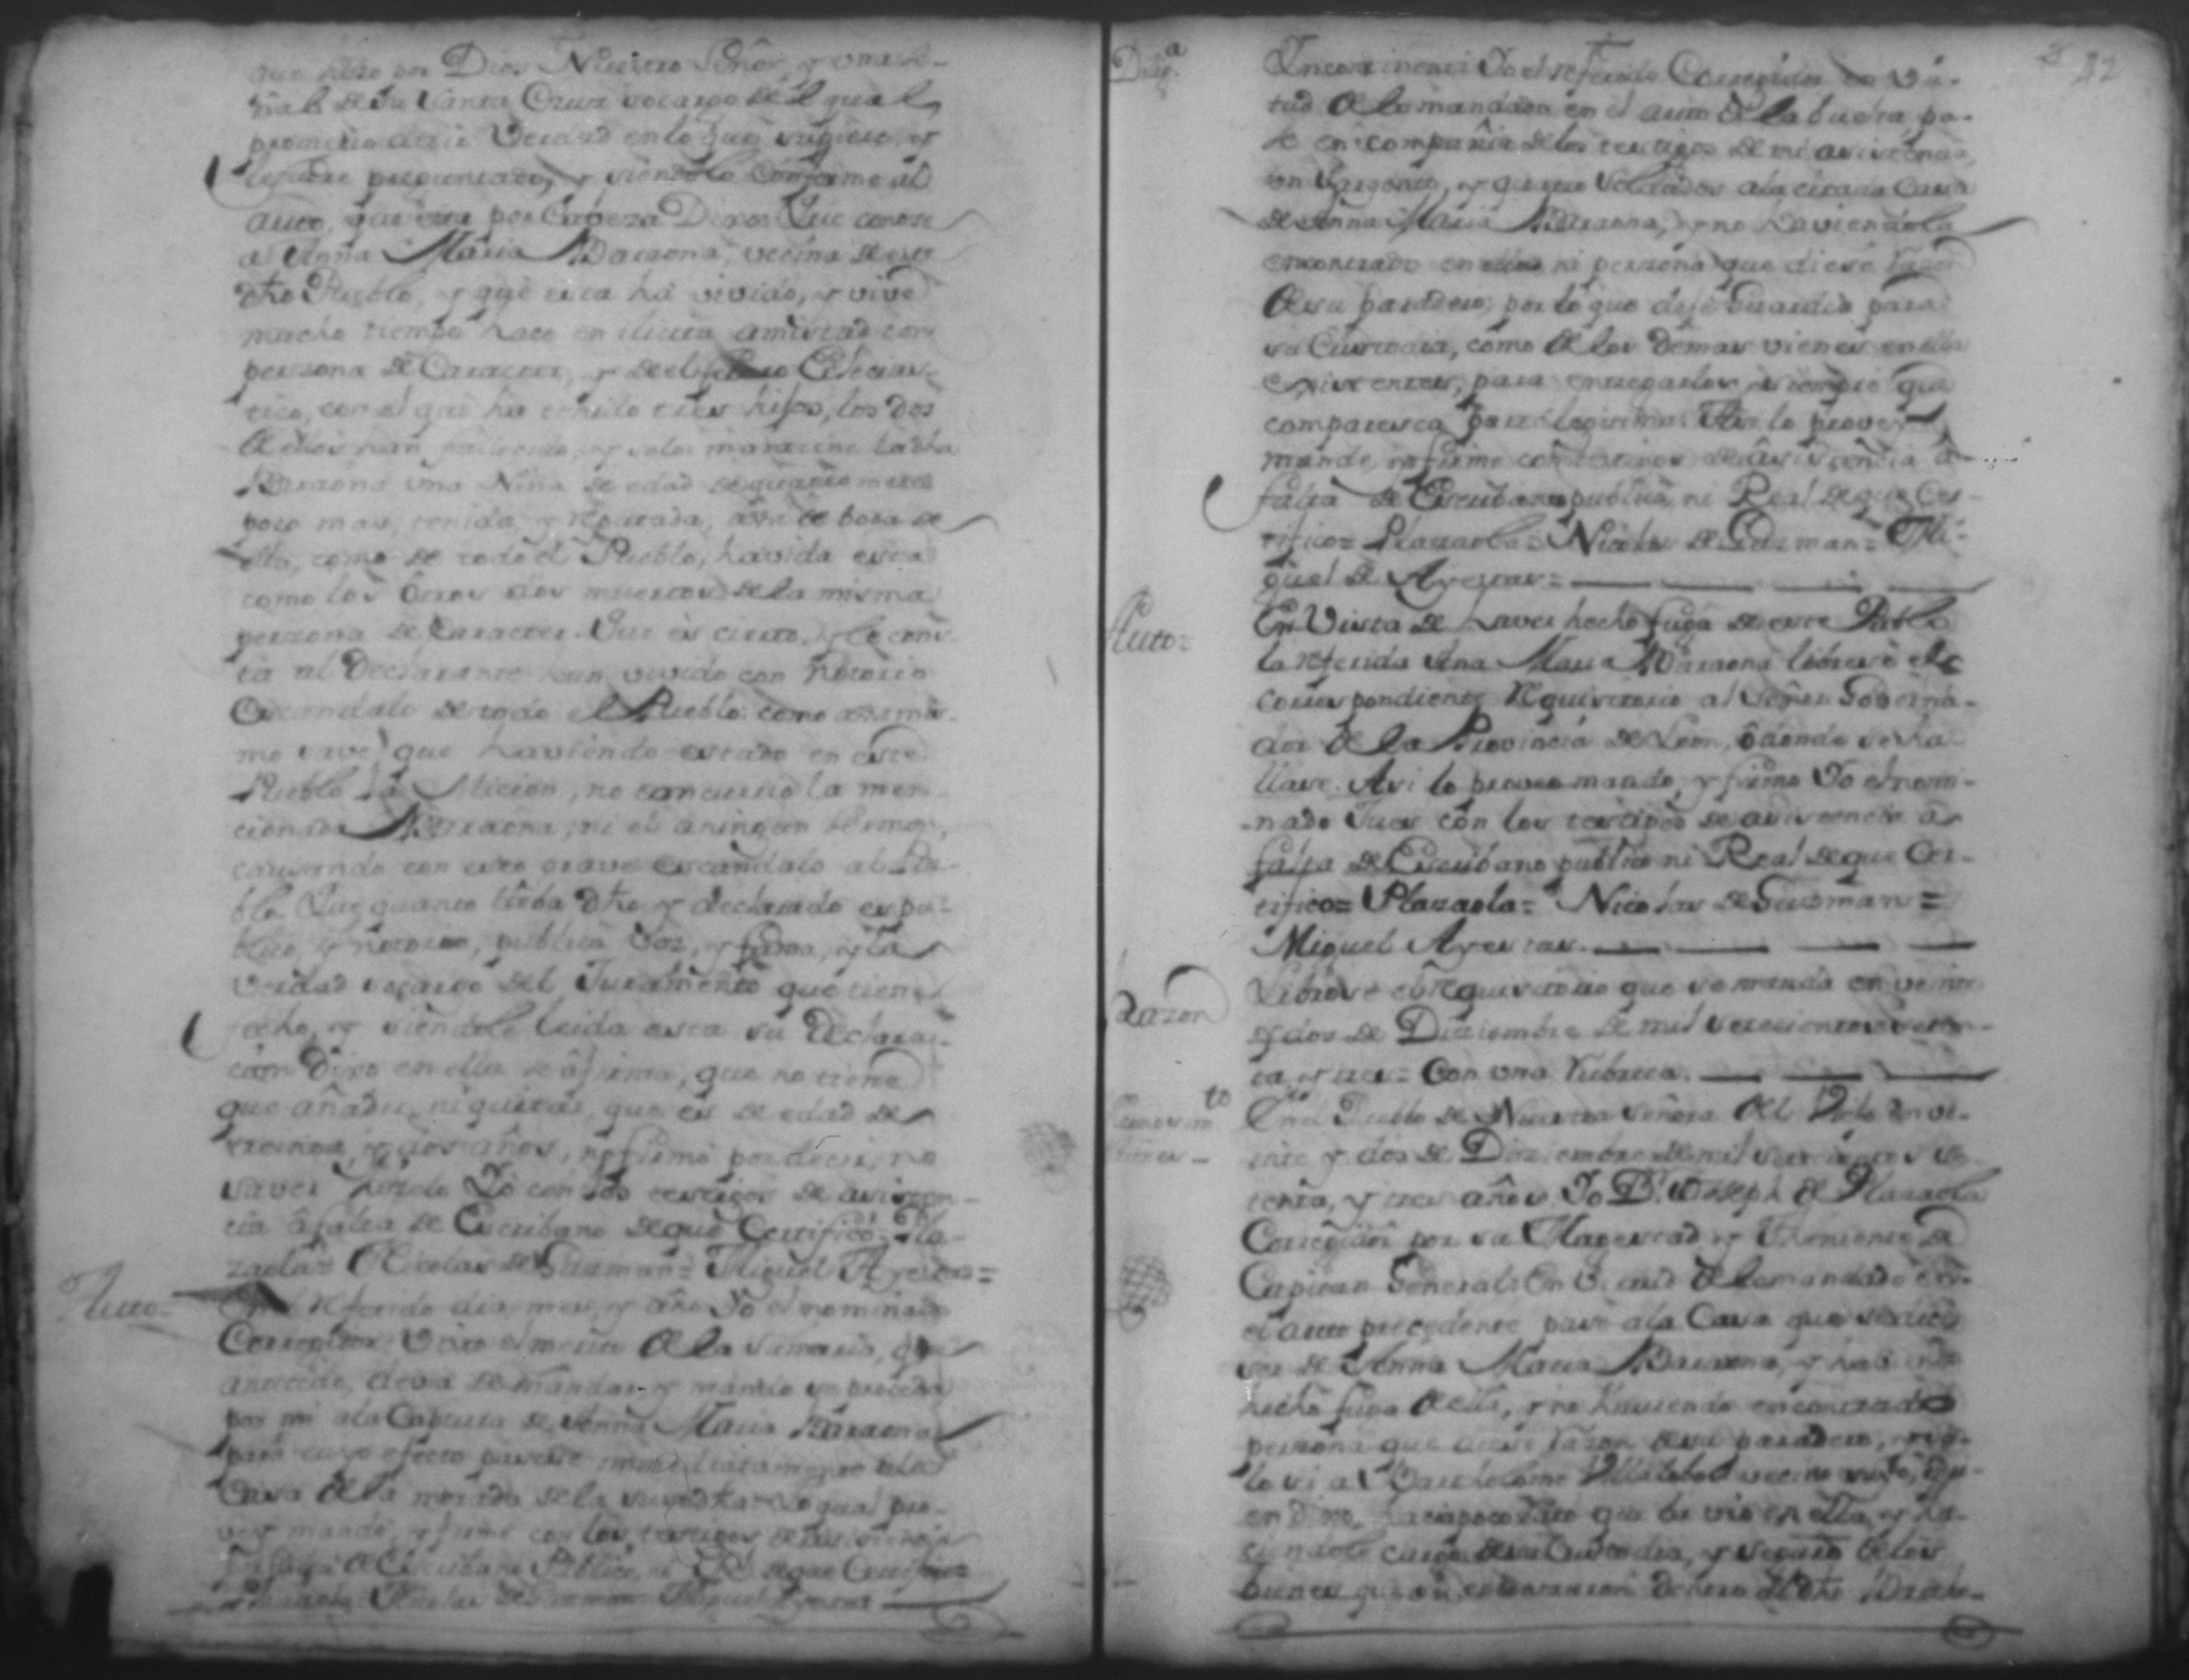 que hizo por Dios Nuestro Señor, y una se-
ñal de su Santa Cruz socargo del qual
prometio decir Verdad en lo que supiere, y
le fuere preguntado, y siendolo conforme al
auto, que esta por Cabeza Dixo: Que conose
a Anna Maria Barraona, vecina de este
dho Pueblo, y que esta ha vivido, y vive
mucho tiempo hace en ilicita amistad con
persona de Caracter, y de el fuero Eclecias-
tico, con el que ha tenido tres hijos, los dos
de ellos han fallecido, y solo mantiene la dha
Barraona una Niña de edad de quatro meses
poco mas, tenida y reputada, assi de boca de
ella, como de todo el Pueblo, havida esta
como los otros dos muertos de la misma
persona de Caracter. Que es cierto, y le cons-
ta al Declarante han vivido con notorio
Escandalo de todo el Pueblo: como assimis-
mo save que haviendo estado en este
Pueblo la Micion, no concurrio la men-
cionada Barraona, ni el a ningun
causando con esto grave escandalo al Pue-
blo. Que quanto lleba dho, y declarado es pu-
blico, y notorio, publica voz, y fama, y la
verdad socargo del Juramento que tiene
fecho, y siendole leida esta su Declara-
cion Dixo en ella se afirma, que no tiene
que añadir, ni quitar, que es de edad de
treinta, y dos años, no firmó por decir, no
saver hizelo Yo con los testigos de asisten-
cia a falta de Escribano de que Certifico= Pla-
zaola= Nicolas de Guzman= Miguel Ayestas=
Auto= En el referido dia, mes, y año Yo el nominado
Corregidor Visto el merito de la Sumaria, que
antecede, devia de mandar y mandó se proceda
por mi a la Captura de Anna Maria Barraona
para cuyo efecto pasese immediatamente a la
Casa de la morada de la susodha lo qual pro-
vey mandé, y firmé con los testigos de asistencia
a falta de Escribano Publico, ni Rl. de que Certifico=
Plazaola= Nicolas de Guzman= Miguel Ayestas
22
Dilig.a Incontinenti Yo el referido Corregidor en vir-
tud de lo mandado en el auto de la buelta, pa-
sé en compañia de los testigos de mi asistencia,
un Sargento, y quatro Soldados a la citada Casa
de Anna Maria Barraona, y no haviendola
encontrado en ella ni persona que diese razon
de su paradero; por lo que dejé Guardia para
su Custodia, como de los demas vienes en ella
existentes, para entregarlos, siempre que
comparesca parte legitima. Asi lo provey
mande, y firme con testigos de asistencia â
falta de Escribano publico, ni Real de que Cer-
tifico= Plazaola= Nicolas de Guzman= Mi-
guel de Ayestas=
Auto= En Vista de haver hecho fuga de este Pueblo
la referida Ana Maria Barraona librese el
correspondiente Requisitorio al Señor Governa-
dor de la Provincia de Leon, ô donde se ha-
llare. Asi lo proveo mando, y firmo Yo el nomi-
nado Juez con los testigos de asistencia a
falta de Escribano publico ni Real de que Cer-
tifico= Plazaola= Nicolas de Guzman=
Miguel Ayestas.
Razon Librose el requisitorio que se manda en veinte
y dos de Diziembre de mil setecientos seten-
ta, y tres= Con una Rubrica.
En el Pueblo de Nuestra Señora del en ve-
inte y dos de Diziembre de mil setecientos se-
tenta, y tres años. Yo Dn. Joseph de Plazaola
Corregidor por su Magestad y Theniente de
Capitan General: En Virtud de lo mandado en
el auto precedente pasé a la Casa que se dice
ser de Anna Maria Barraona, y haviendo
hecho fuga de ella, y no haviendo encontrado
persona que diese razon de su paradero,
a Bartholome Villalobos vecino
en
cuido de su Custodia, y seguro de los
bienes que se encontraron dentro de dha